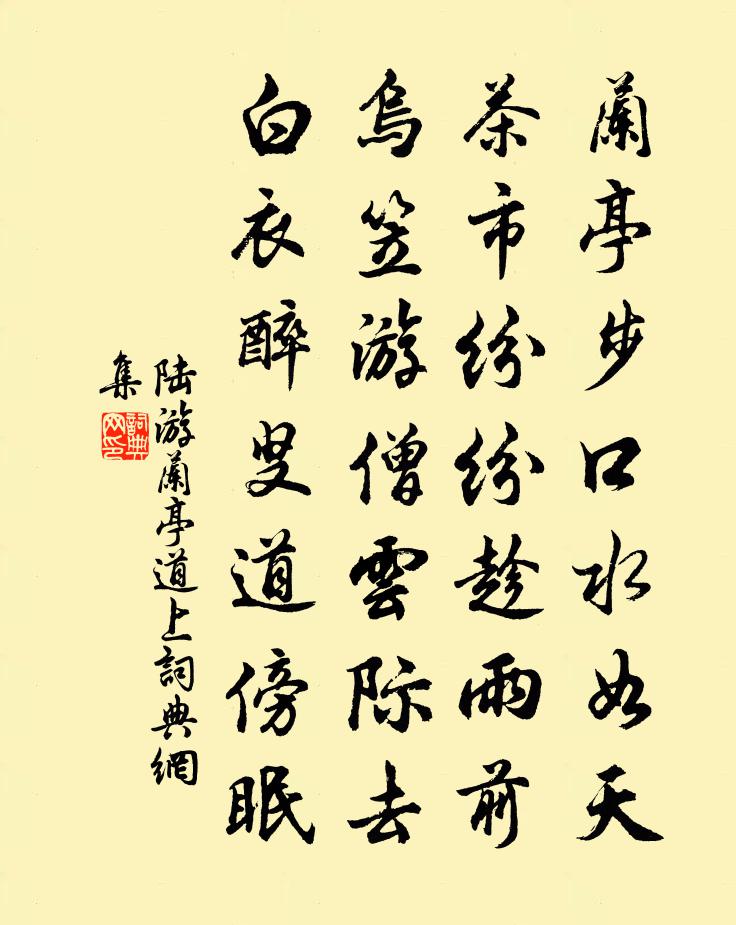 蘭亭步口水如天
茶市紛紛趁雨前
烏笠游僧雲际去
白衣醉叟道傍眠
陆游蘭亭道上詞典網
集
詞典
网印